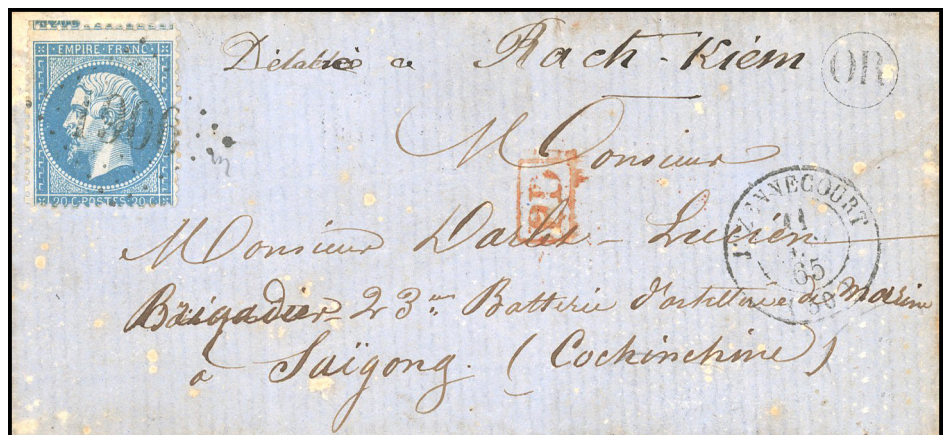 EMPIRE FRANC
20 C POSTES 20 C
à Rach-Kiém
OR
Monsieur
PD
JUZENNECOURT
65
Monsieur Lucien
Brigadier 23me Batterie d'artillerie de Marine
à Saïgong. (Cochinchine)